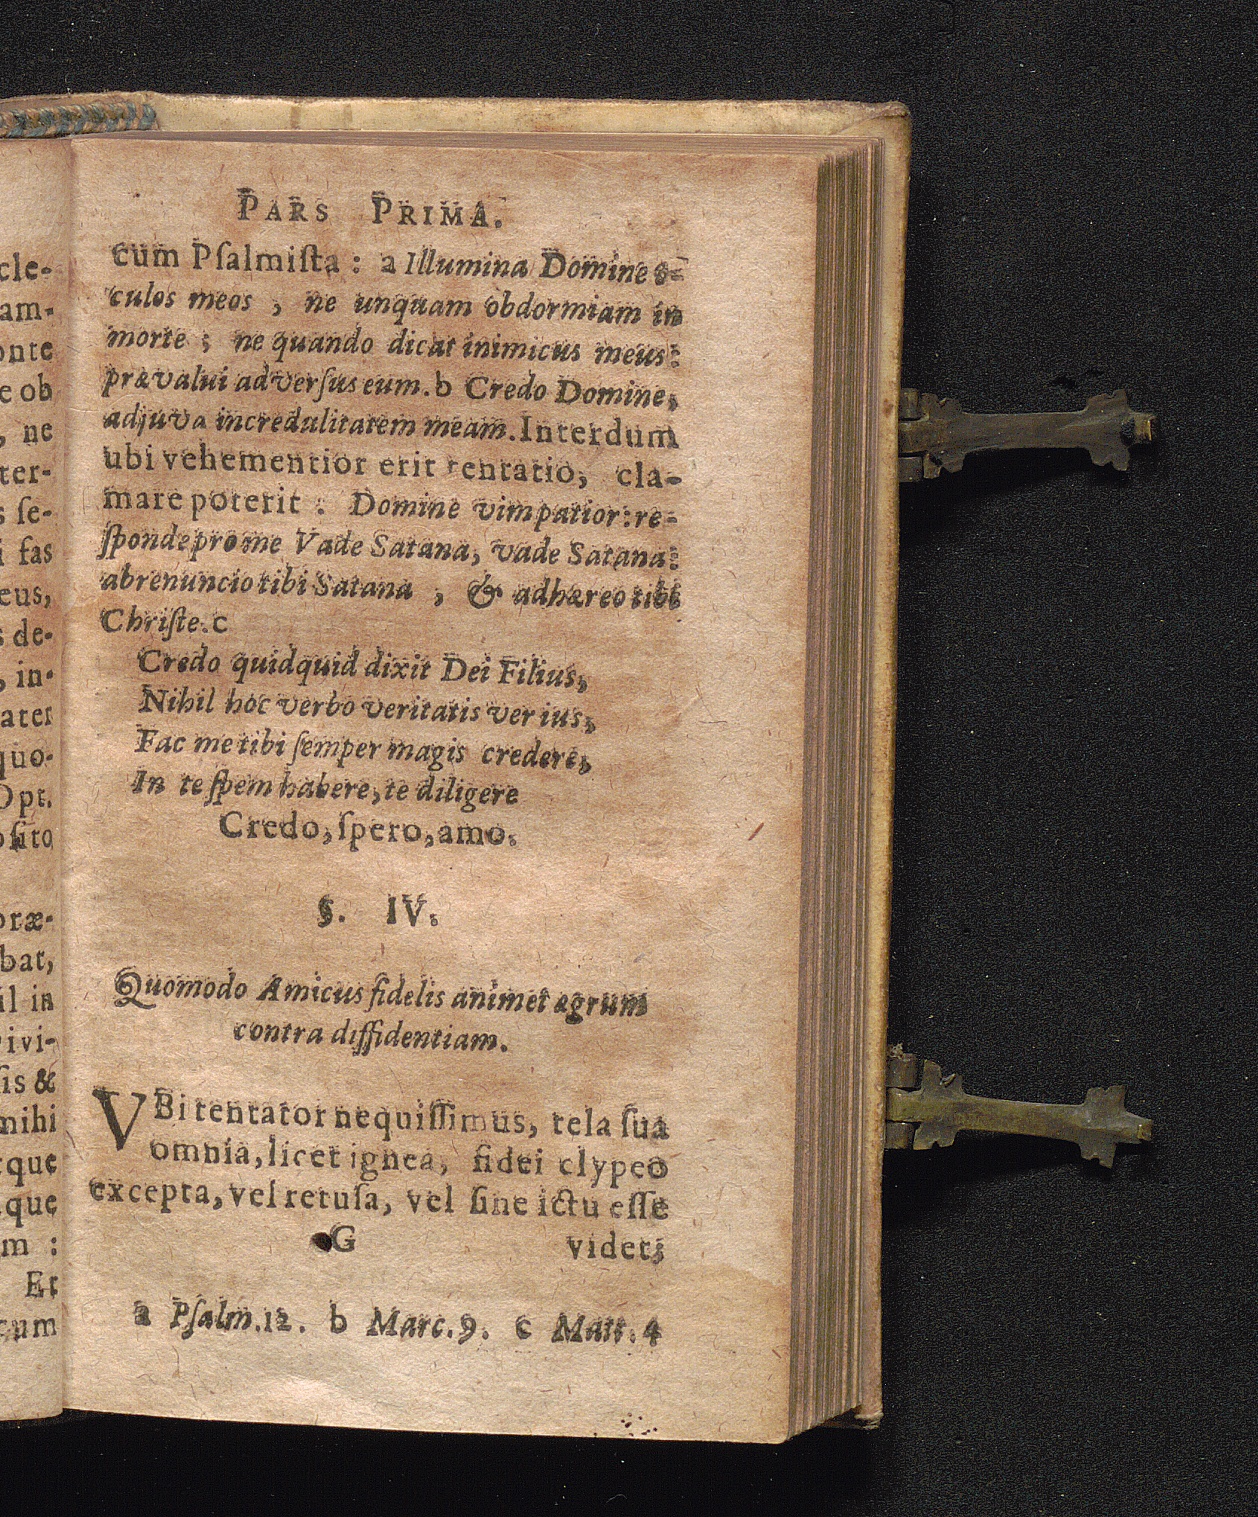 PARS PRIMA.
cum Pſalmiſta : a Illumina Domine o-
culos meos , ne unquam obdormiam in
morte ; ne quando dicat inimicus meus:
prævalui adverſus eum. b Credo Domine,
adjuva incredulitatem meam. Interdum
ubi vehementior erit tentatio, cla-
mare poterit : Domine vim patior: re-
ſponde pro me Vade Satana, vade Satana:
abrenuncio tibi Satana , & adhæreo tibi
Chriſte. c
Credo quidquid dixit Dei Filius,
Nihil hoc verbo veritatis verius,
Fac me tibi ſemper magis credere,
In te ſpem habere, te diligere
Credo, ſpero, amo.
§. IV.
Quomodo Amicus fidelis animet ægrum
contra diffidentiam.
VBi tentator nequiſſimus, tela ſua
omnia, licet ignea, fidei clypeo
excepta, vel retuſa, vel ſine ictu eſſe
G videt;
a Pſalm. 12. b Marc. 9. c Matt. 4
cle-
am-
onte
e ob
, ne
ter-
s ſe-
i fas
eus,
s de-
, in-
ater
quo-
Opt.
oſito
præ-
bat,
il in
ivi-
ſis &
mihi
que
que
m :
Et
cum